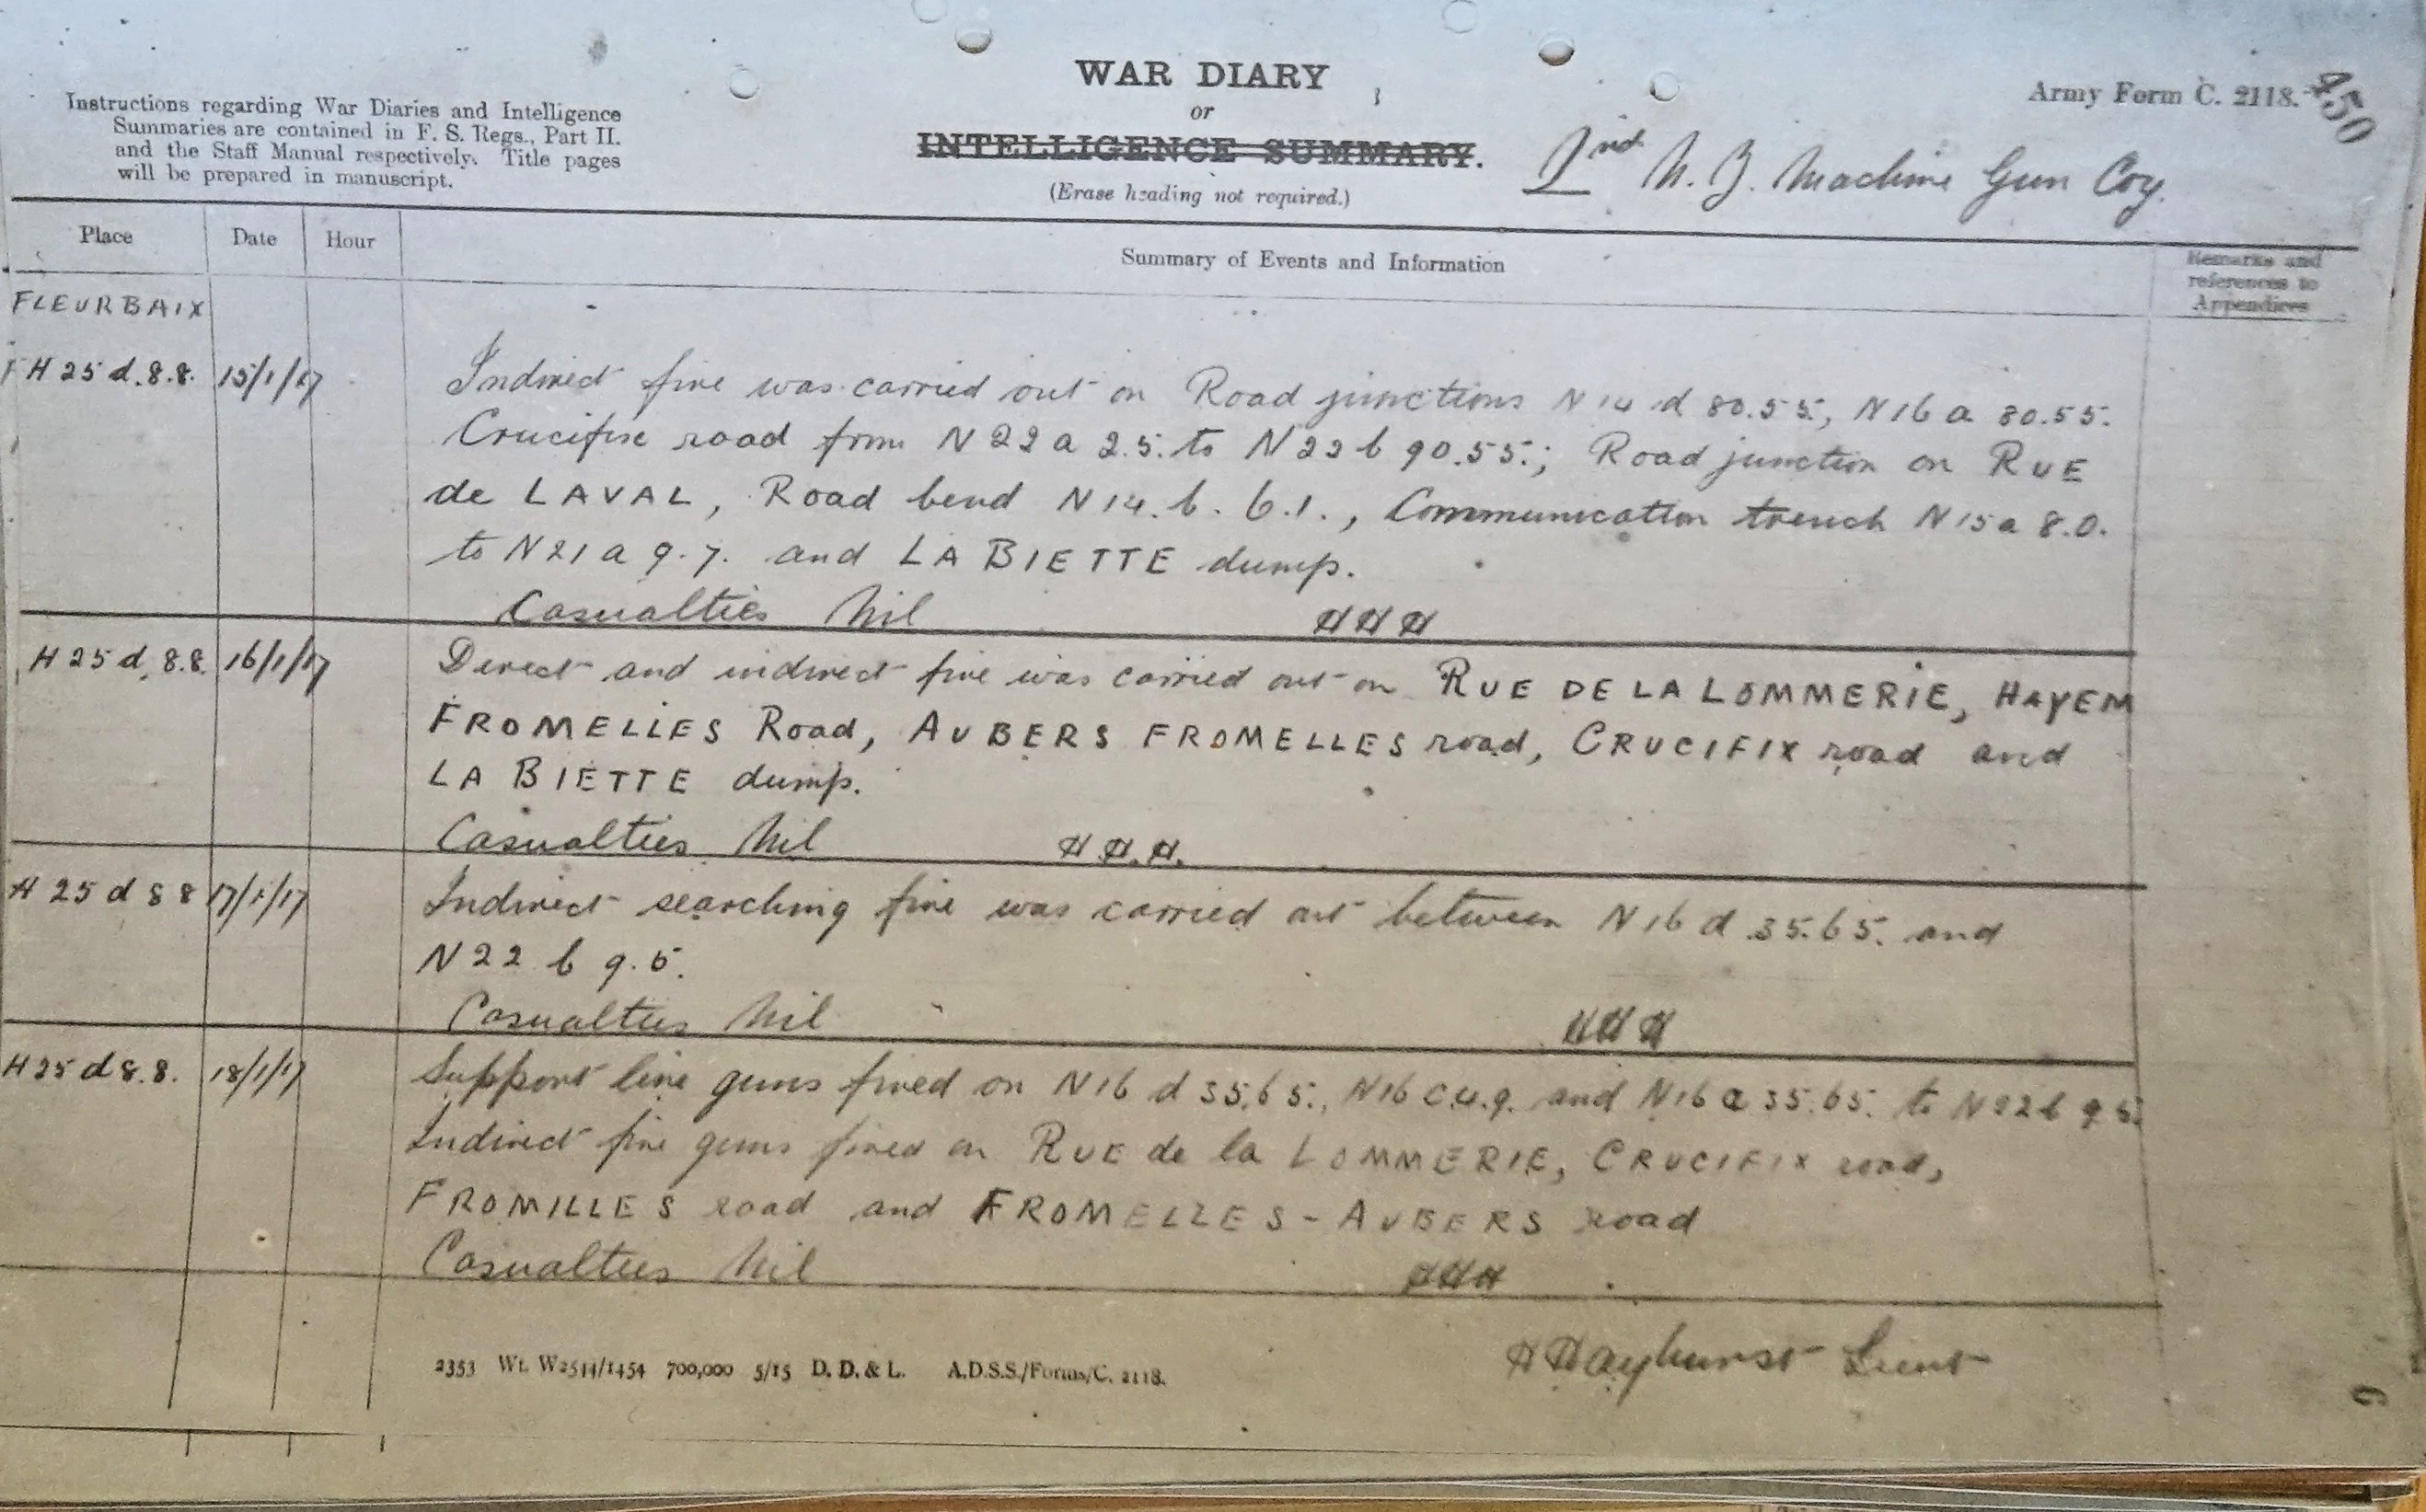 WAR DIARY
or
INTELLIGENCE SUMMARY.
(Erase heading not required.)
Instructions regarding War Diaries and Intelligence
Summaries are contained in F. S. Regs., Part II.
and the Staff Manual respectively. Title pages
will be prepared in manuscript.
Army Form C. 2118.
450
2nd N. Z. Machine Gun Coy.
Place Date Hour Summary of Events and Information Remarks and
references to
Appendices
FLEURBAIX
H 25 d. 8.8. 15/1/17 Indirect fire was carried out on Road junctions N 14 d 80.55, N 16 a 80.55.
Crucifix road from N 22 a 2.5. to N 22 b 90.55.; Road junction on RUE
de LAVAL, Road bend N 14. b. 6.1., Communication trench N 15 a 8.0.
to N 21 a 9.7. and LA BIETTE dump.
Casualties Nil HHH
H 25 d. 8.8. 16/1/17 Direct and indirect fire was carried out on RUE DE LA LOMMERIE, HAYEM
FROMELLES Road, AUBERS FROMELLES road, CRUCIFIX road and
LA BIETTE dump.
Casualties Nil H.H.H.
H 25 d 8 8 17/1/17 Indirect searching fire was carried out between N 16 d 35.65. and
N 22 b 9.5.
Casualties Nil HHH
H 25 d 8.8. 18/1/17 Support line guns fired on N 16 d 35.65., N 16 c.4.9. and N 16 a 35.65. to N 22 b 9 5.
Indirect fire guns fired on RUE de la LOMMERIE, CRUCIFIX road,
FROMILLES road and FROMELLES - AUBERS road
Casualties Nil HHH
H Hayhurst Lieut
2353 Wt. W2544/1454 700,000 5/15 D. D. & L. A.D.S.S./Forms/C. 2118.